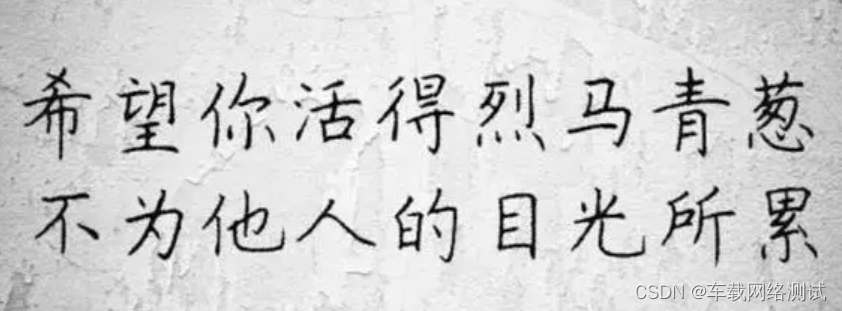 希望你活得烈马青葱
不为他人的目光所累
CSDN @车载网络测试